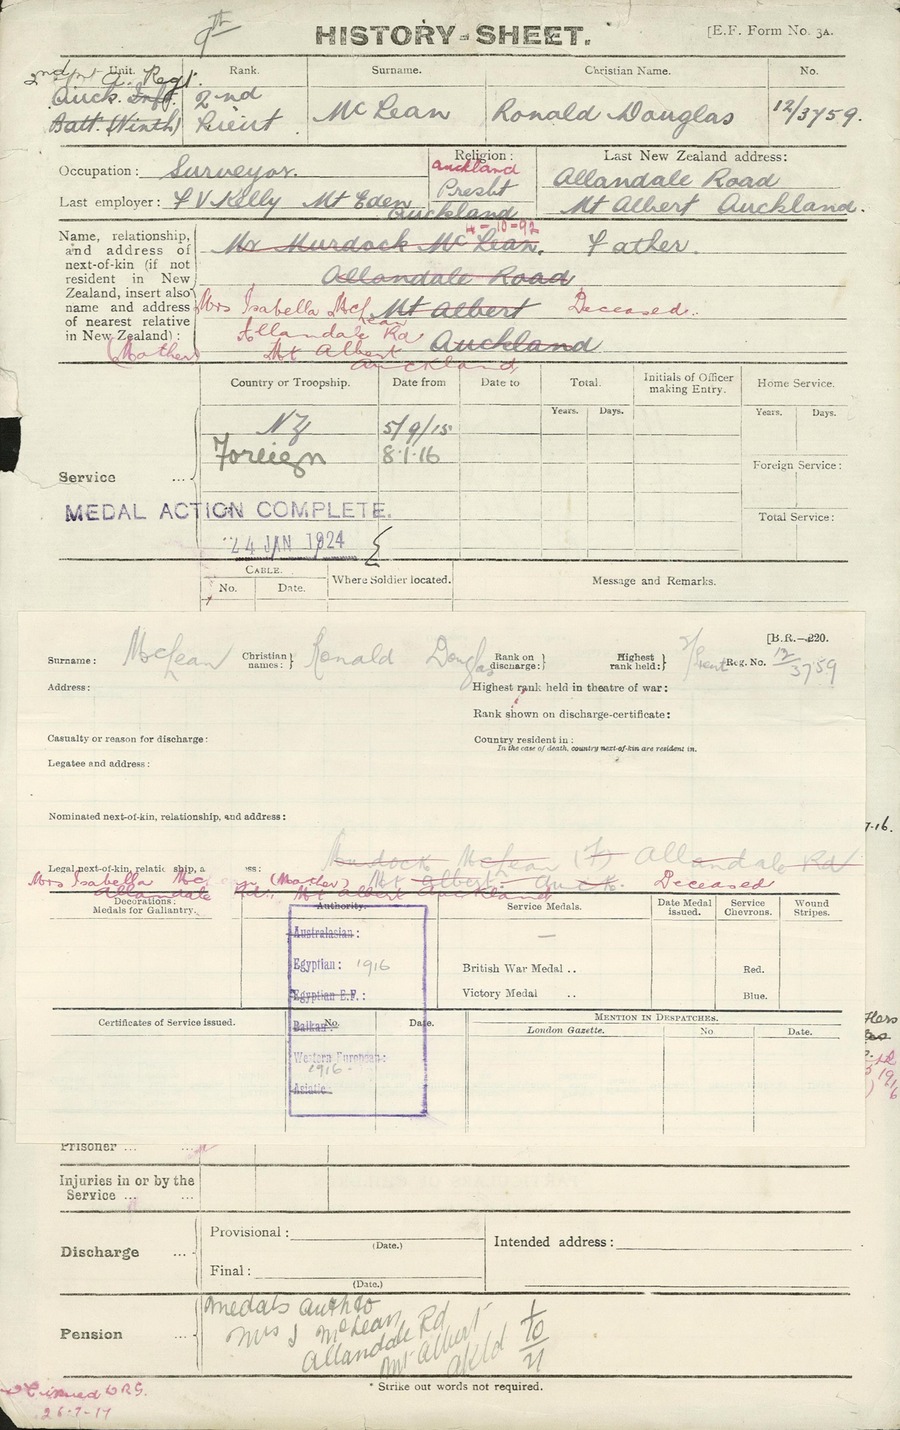 9th
HISTORY-SHEET.
[E.F. Form No. 3A.
Unit. Rank. Surname. Christian Name. No.
2nd A. Regt.
Auck. Inft. 2nd McLean Ronald Douglas 12/3759.
Batt. (Ninth) Lieut.
Occupation: Surveyor. Religion: Last New Zealand address:
Auckland
Presbt Allandale Road
Last employer: F V Kelly Mt Eden Mt Albert Auckland.
Auckland
4-10-92
Name, relationship, Mr Murdock McLean. Father.
and address of
next-of-kin (if not Allandale Road
resident in New
Zealand, insert also
name and address Mrs Isabella McLean Mt Albert Deceased.
of nearest relative Allandale Rd
in New Zealand): Mt Albert Auckland
(Mother) Auckland
Country or Troopship. Date from Date to Total. Initials of Officer making Entry. Home Service.
Years. Days. Years. Days.
NZ 5/9/15
Foreign 8.1.16
Foreign Service:
Service ...
MEDAL ACTION COMPLETE.
Total Service:
24 JAN 1924
Cable. Where Soldier located. Message and Remarks.
No. Date.
[B.R.—220.
Surname: McLean Christian names: Ronald Douglas Rank on discharge: Highest rank held: 2/Lieut Reg. No. 12/3759
Address: Highest rank held in theatre of war:
Rank shown on discharge-certificate:
Casualty or reason for discharge: Country resident in:
In the case of death, country next-of-kin are resident in.
Legatee and address:
Nominated next-of-kin, relationship, and address:
7.16.
Murdock McLean (F) Allandale Rd
Legal next-of-kin, relatic ship, a ess:
Mrs Isabella Mc (Mother) Mt Albert Auck. Deceased
Allandale Rd., Mt Albert Auckland
Decorations: Authority. Service Medals. Date Medal issued. Service Chevrons. Wound Stripes.
Medals for Gallantry.
Australasian:
Egyptian: 1916 British War Medal .. Red.
Egyptian E.F.: Victory Medal .. Blue.
Certificates of Service issued. No. Date. Mention in Despatches.
Balkan: London Gazette. No Date.
Western European:
1916-
Asiatic:
Prisoner ... ...
Injuries in or by the
Service ... ...
Provisional:
(Date.)
Discharge ... Intended address:
Final:
(Date.)
Medals auth to
Pension ... Mrs I McLean
Allandale Rd
Mt Albert
Akld
1/10/21
* Strike out words not required.
26-7-17